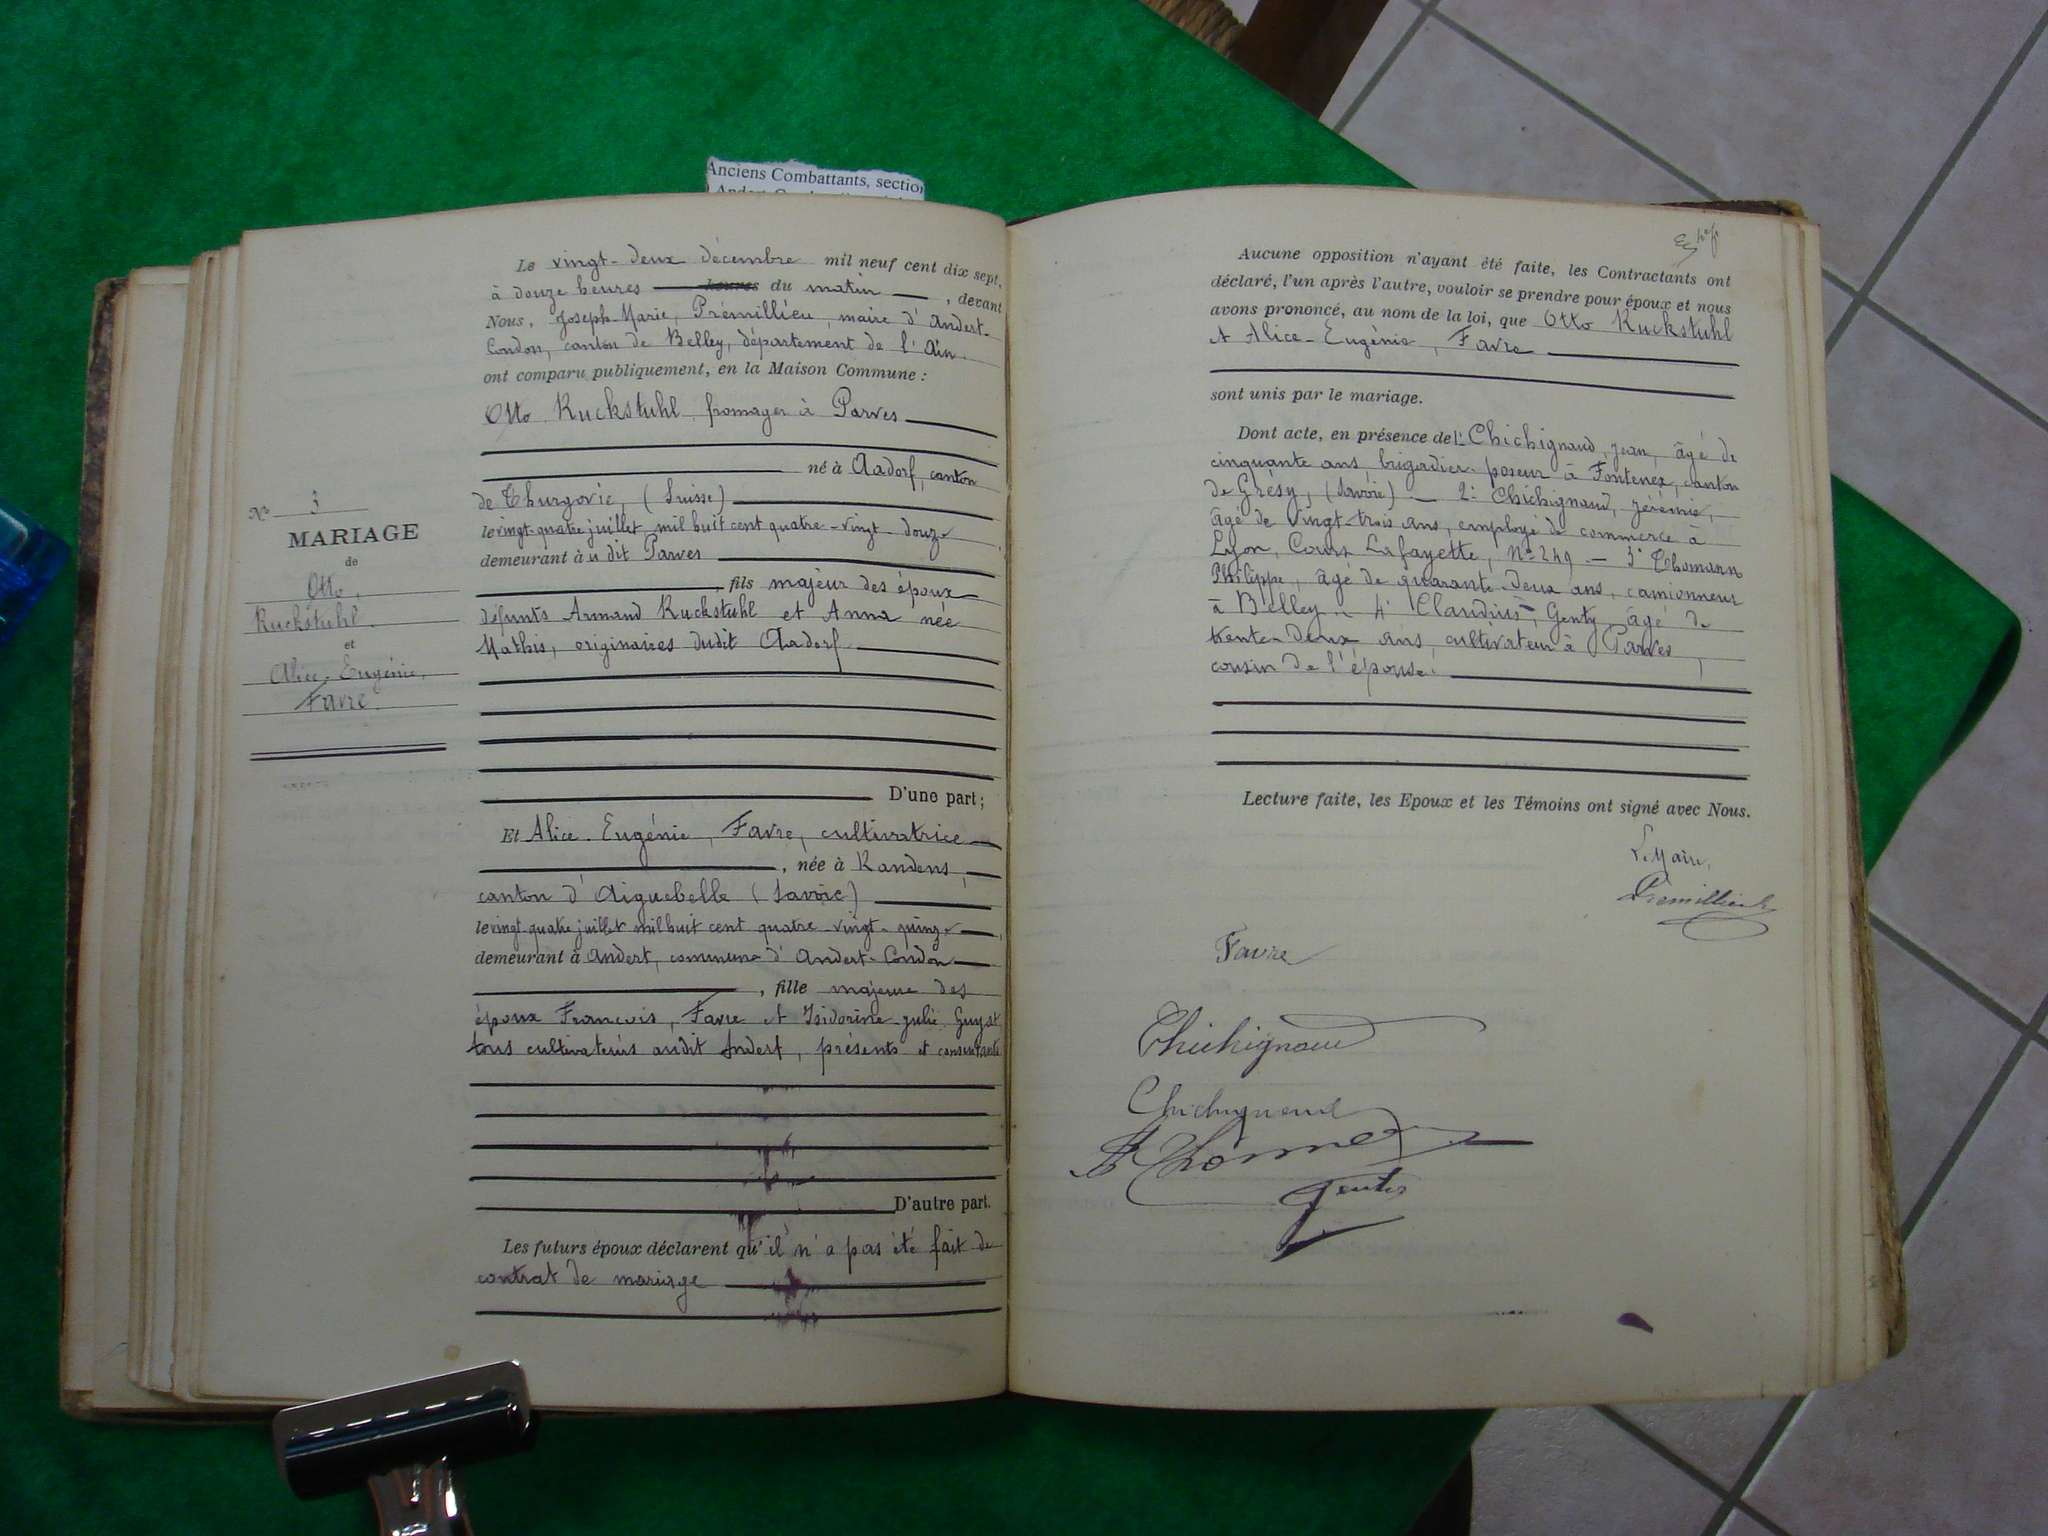 Anciens Combattants, section
N° 3
MARIAGE
de
Otto,
Ruckstuhl.
et
Alice-Eugénie,
Favre.
Le vingt-deux décembre mil neuf cent dix sept,
à douze heures heures du matin, devant
Nous, Joseph-Marie, Prémillieu, maire d'Andert-
Condon, canton de Belley, département de l'Ain
ont comparu publiquement, en la Maison Commune :
Otto Ruckstuhl, fromager à Parves
né à Aadorf, canton
de Thurgovie, (Suisse)
le vingt-quatre juillet mil huit cent quatre-vingt-douze
demeurant à u dit Parves
, fils majeur des époux
défunts Armand Ruckstuhl et Anna née
Mathis, originaires dudit Aadorf.
D'une part;
Et Alice-Eugénie, Favre, cultivatrice
, née à Randens,
canton d'Aiguebelle (Savoie)
le vingt-quatre juillet mil huit cent quatre-vingt-quinze
demeurant à Andert, commune d'Andert-Condon
, fille majeure des
époux François, Favre et Isidorine-Julie
tous cultivateurs audit Andert, présents et consentants
D'autre part.
Les futurs époux déclarent qu'il n'a pas été fait de
contrat de mariage
Aucune opposition n'ayant été faite, les Contractants ont
déclaré, l'un après l'autre, vouloir se prendre pour époux et nous
avons prononcé, au nom de la loi, que Otto Ruckstuhl
et Alice-Eugénie, Favre
sont unis par le mariage.
Dont acte, en présence de 1° Chichignoud, Jean, âgé de
cinquante ans, brigadier-poseur à Fontenex, canton
de Grésy, (Savoie) — 2° Chichignoud, Jérémie,
âgé de vingt-trois ans, employé de commerce à
Lyon, Cours Lafayette, N° 249 — 3° Thomann
Philippe, âgé de quarante-deux ans, camionneur
à Belley — 4° Claudius, Genty, âgé de
trente-deux ans, cultivateur à Parves,
cousin de l'épouse.
Lecture faite, les Epoux et les Témoins ont signé avec Nous.
Le Maire,
Premillieu
Favre
Chichignoud
Chichignoud
Genty